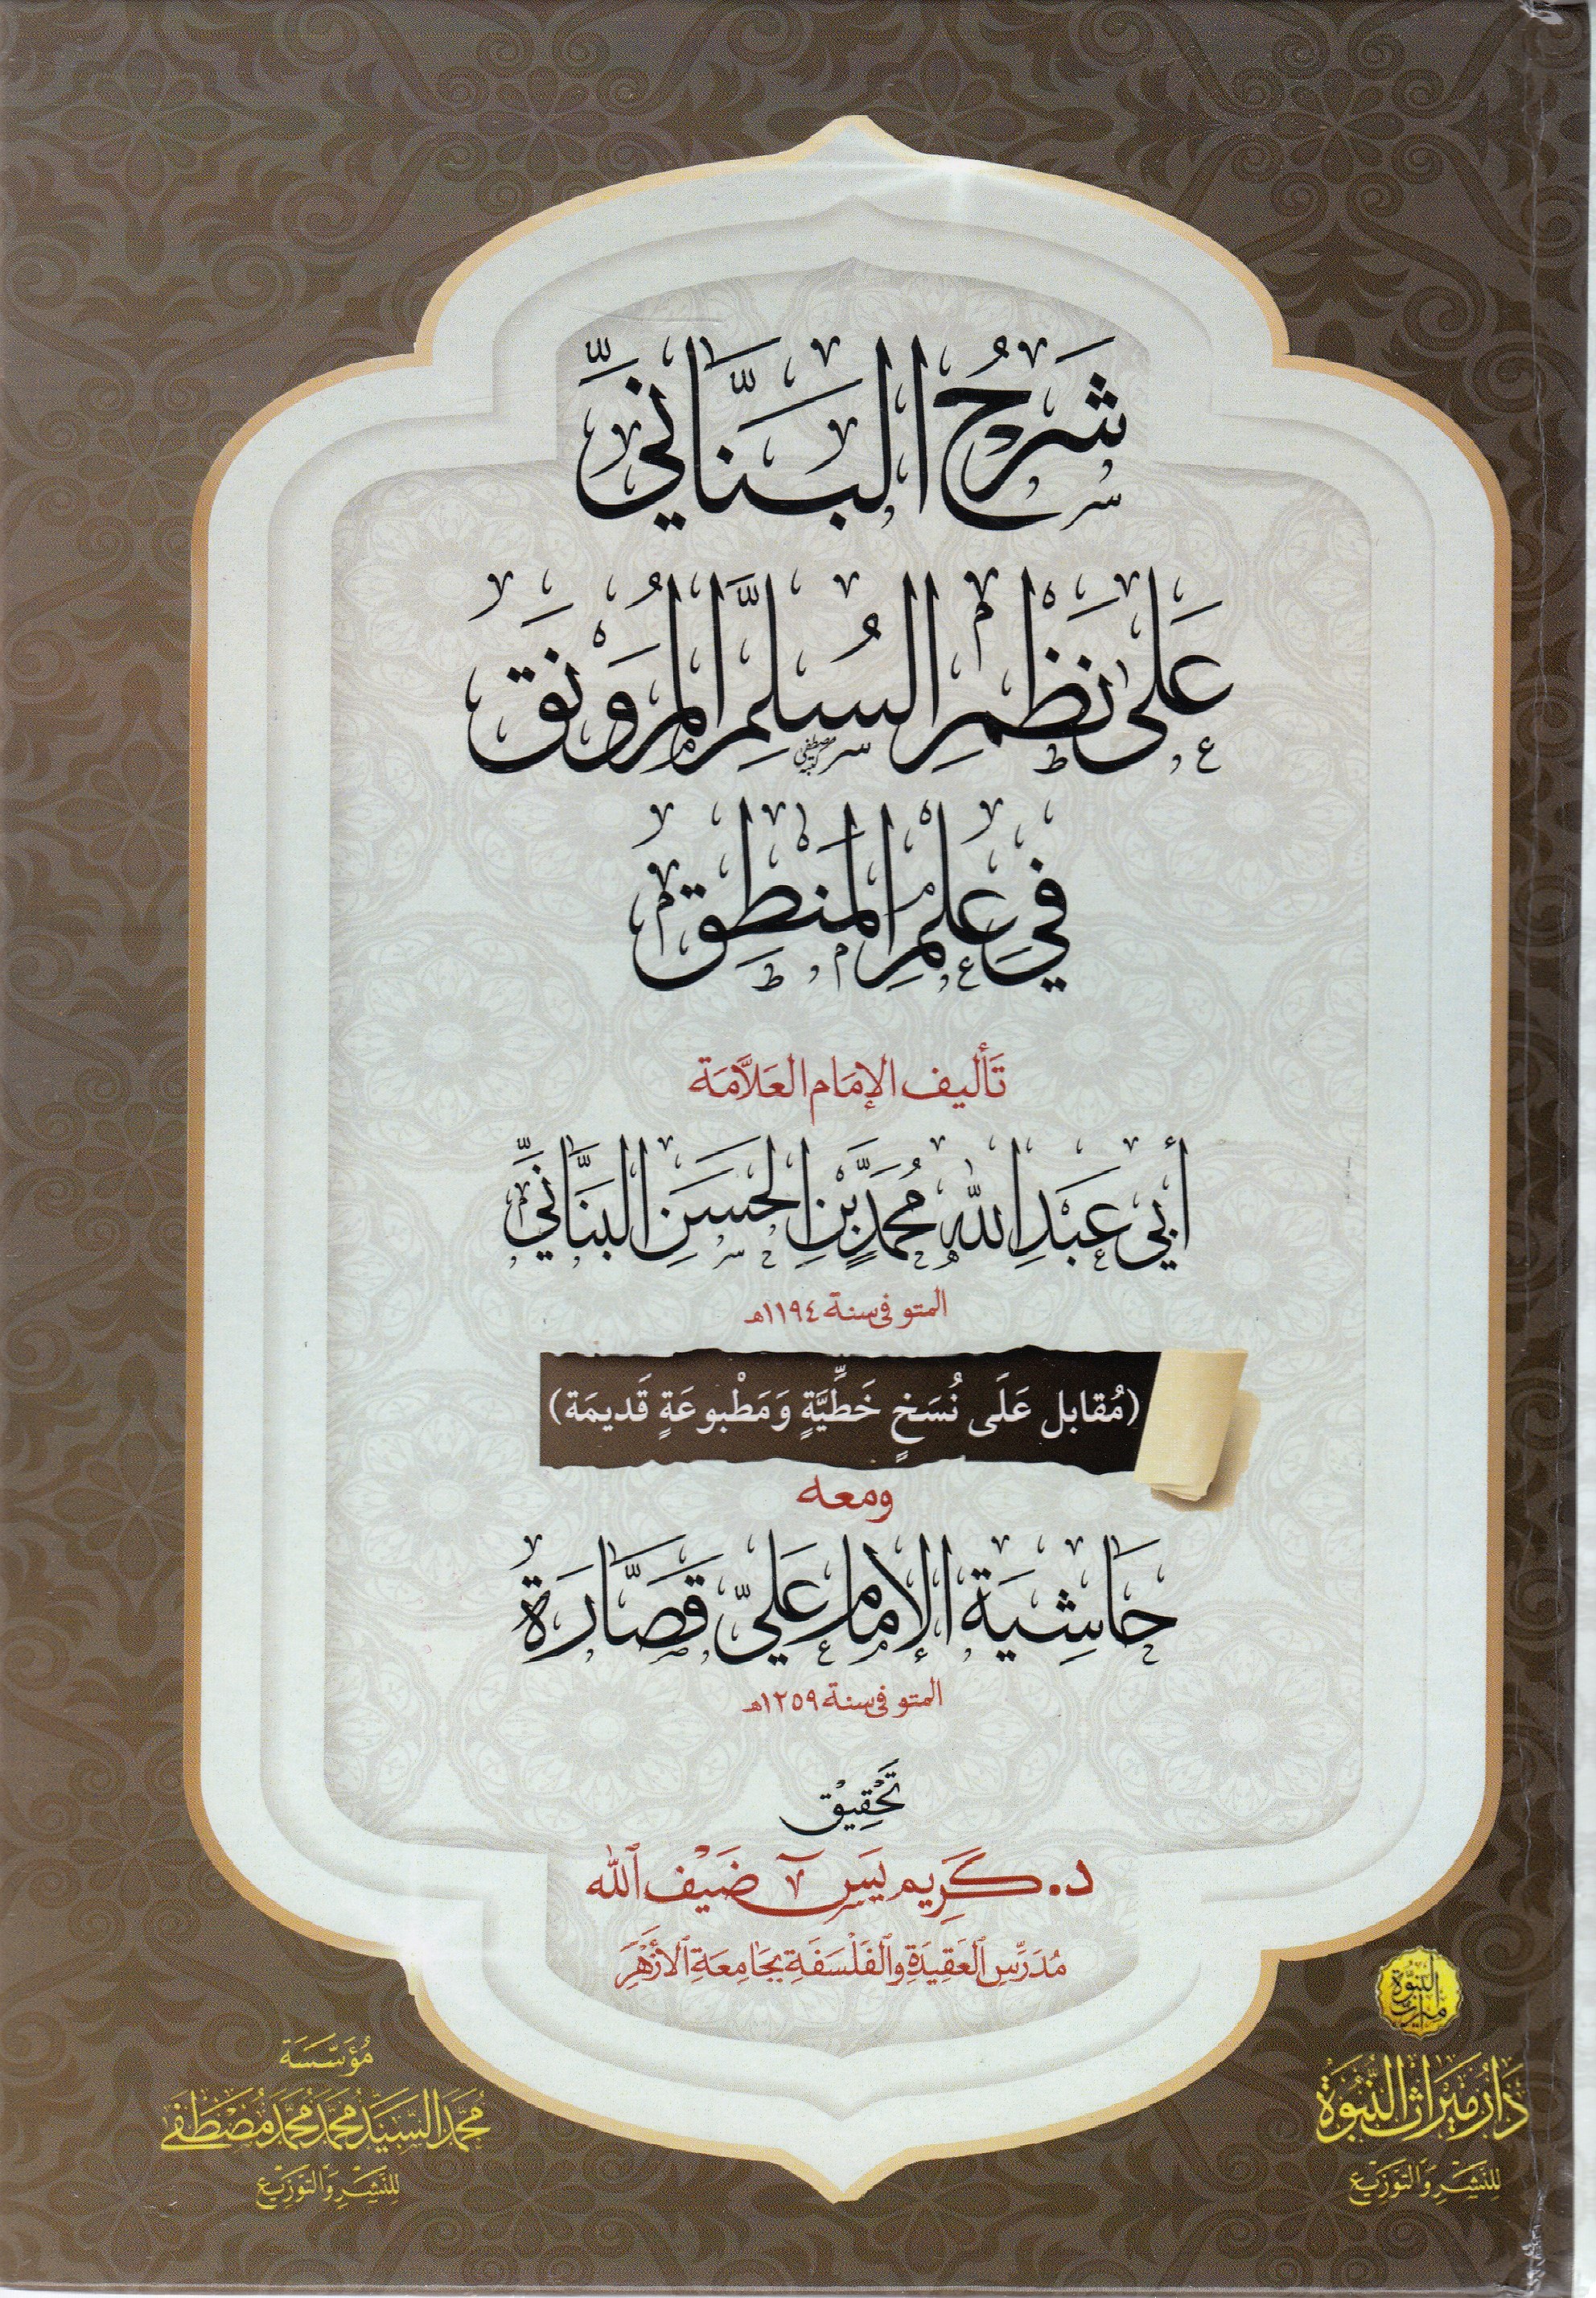 شَرْحُ البَنَّانِيِّ
عَلَى نَظْمِ السُلَّمِ المُرَوْنَقِ
فِي عِلْمِ المَنطِقِ
تَأليف الإمَام العَلاَّمَة
أَبِي عَبْدِ اللَّهِ مُحَمَّدِ بْنِ الحَسَنِ البَنَّانِيِّ
المتوفى سنة ١١٩٤هـ
(مُقابل عَلَى نُسَخٍ خَطِّيَّةٍ وَمَطْبوعَةٍ قَديمَة)
ومعه
حَاشِيَة الإِمَام عَلِيّ قَصَّارَة
المتوفى سنة ١٢٥٩هـ
تَحْقِيْق
د. كَرِيم يَسٓ ضَيْف الله
مُدَرِّس العَقِيدَةِ وَالفَلْسَفَةِ بِجَامِعَةِ الأَزْهَرِ
ميراث النبوة
دَارُ مِيْرَاثِ النُّبُوَّة
لِلنَّشْرِ وَالتَّوْزِيْع
مُؤَسَّسَة
مُحَمَّد السَّيِّد مُحَمَّد مُحَمَّد مُصْطَفَى
لِلنَّشْرِ وَالتَّوْزِيْع